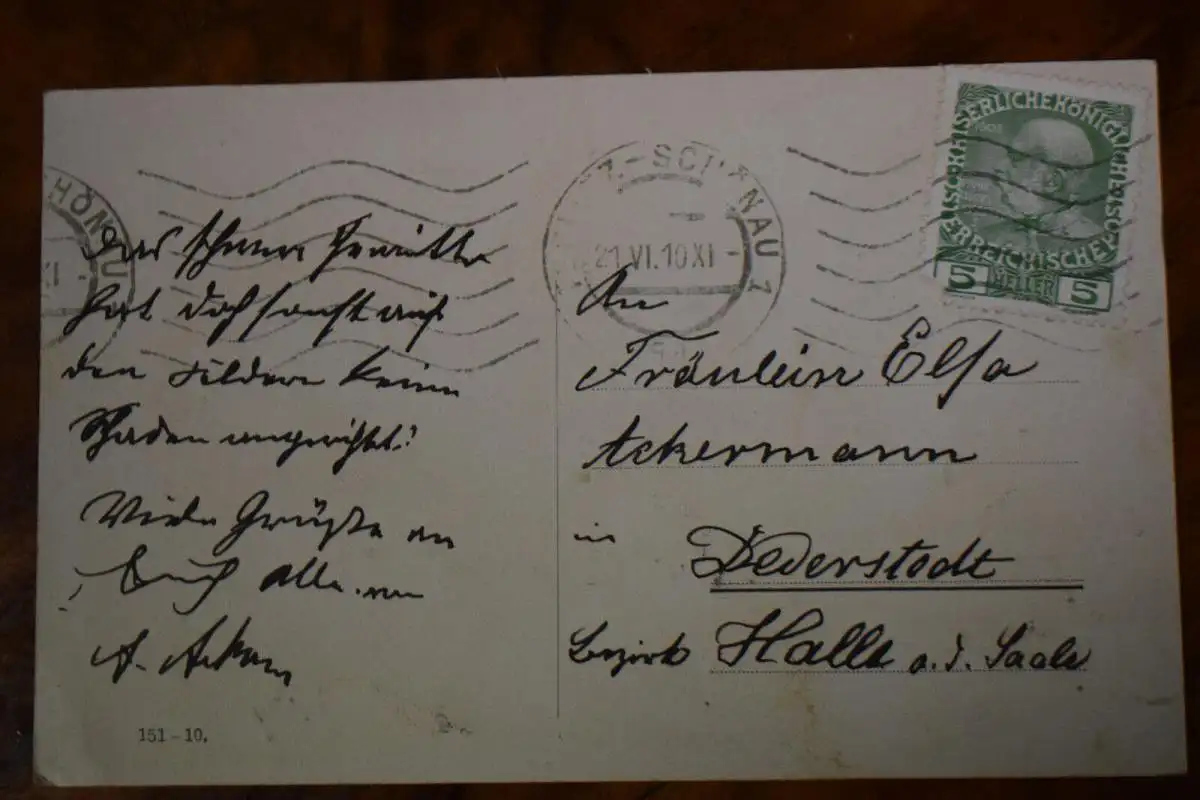 Das schwere Gewitter
hat doch sonst auf
den Feldern keinen
Schaden angerichtet?
Viele Grüße an
Euch alle von
A. Ackerm
151-10.
HÖNAU
XI -
-SCHÖNAU 1
21 VI. 10 XI -
KAISERLICHE KÖNIGLICHE ÖSTERREICHISCHE POST
1908
5 HELLER 5
An
Fräulein Elsa
Ackermann
in Dederstedt
Bezirk Halle a. d. Saale